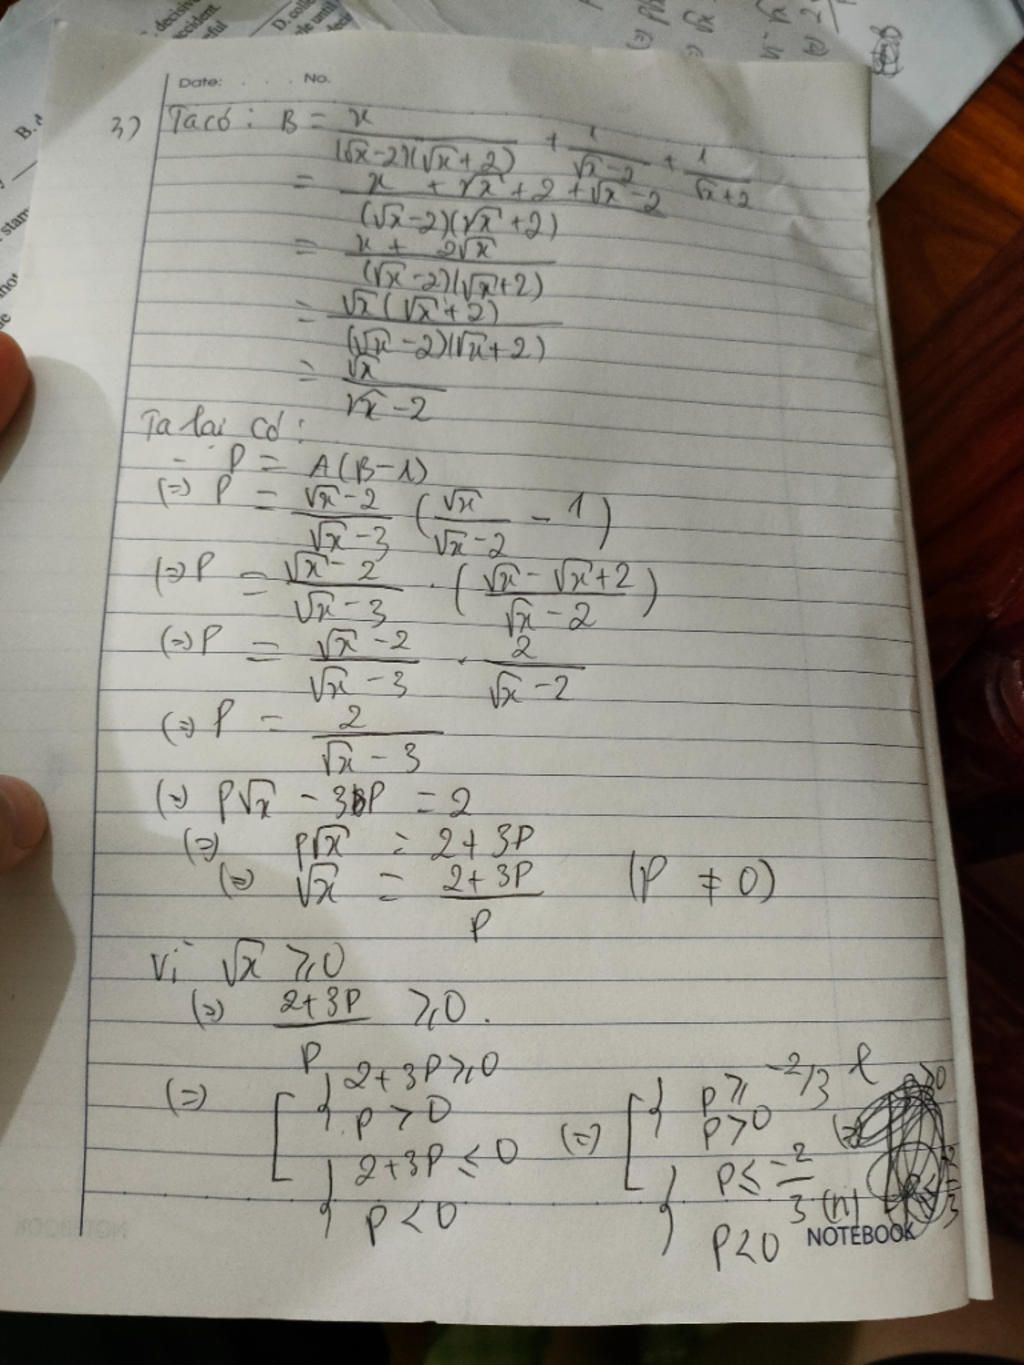 Date: . . . . No.
3) Ta có: B = x/((√x-2)(√x+2)) + 1/(√x-2) + 1/(√x+2)
= (x + √x + 2 + √x - 2)/((√x-2)(√x+2))
= (x + 2√x)/((√x-2)(√x+2))
= √x(√x+2)/((√x-2)(√x+2))
= √x/(√x-2)
Ta lại có:
- P = A(B-1)
(=) P = (√x-2)/(√x-3) (√x/(√x-2) - 1)
(=) P = (√x-2)/(√x-3) . ((√x-√x+2)/(√x-2))
(=) P = (√x-2)/(√x-3) . 2/(√x-2)
(=) P = 2/(√x-3)
(=) P√x - 3P = 2
(=) P√x = 2+3P
(=) √x = (2+3P)/P (P ≠ 0)
Vì √x ⩾ 0
(=) (2+3P)/P ⩾ 0.
(=) [ { 2+3P ⩾ 0 (=) [ { P ⩾ -2/3 l
P > 0 P > 0 (=)
{ 2+3P ≤ 0 { P ≤ -2/3 (n)
P < 0 P < 0
NOTEBOOK